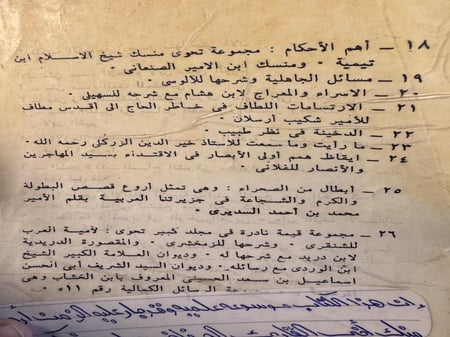 ١٨ – أهم الأحكام : مجموعة تحوى منسك شيخ الاسلام ابن
تيمية ٠ ومنسك ابن الامير الصنعانى ٠
١٩ – مسائل الجاهلية وشرحها للآلوسى ٠
٢٠ – الاسراء والمعراج لابن هشام مع شرحه للسهيلى ٠
٢١ – الارتسامات اللطاف فى خاطر الحاج الى أقدس مطاف
للأمير شكيب أرسلان ٠
٢٢ – الدخينة فى نظر طبيب ٠
٢٣ – ما رأيت وما سمعت للاستاذ خير الدين الزركلى رحمه الله ٠
٢٤ – ايقاظ همم أولى الأبصار فى الاقتداء بسيد المهاجرين
والأنصار للفلانى ٠
٢٥ – أبطال من الصحراء : وهى تمثل أروع قصص البطولة
والكرم والشجاعة فى جزيرتنا العربية بقلم الأمير
محمد بن أحمد السديرى ٠
٢٦ – مجموعة قيمة نادرة فى مجلد كبير تحوى : لأمية العرب
للشنفرى ٠ وشرحها للزمخشرى ٠ والمقصورة الدريدية
لابن دريد مع شرحها له ٠ وديوان العلامة الكبير الشيخ
ابن الوردى مع رسائله ٠ وديوان السيد الشريف أبى الحسن
اسماعيل بن سعد الحسينى المعروف بابن الخشاب وهى
الرسائل الكمالية رقم «١١» ٠